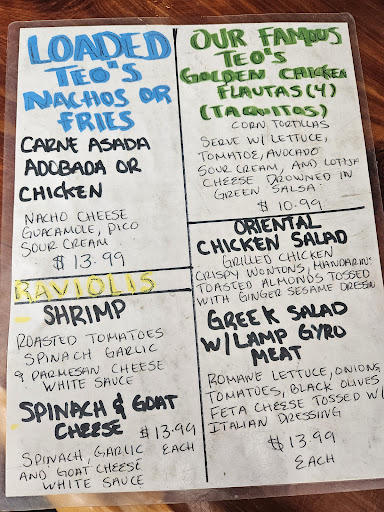 LOADED
TEO'S
NACHOS OR
FRIES
CARNE ASADA
ADOBADA OR
CHICKEN
NACHO CHEESE
GUACAMOLE, PICO
SOUR CREAM
$13.99
RAVIOLIS
SHRIMP
ROASTED TOMATOES
SPINACH GARLIC
& PARMESAN CHEESE
WHITE SAUCE
SPINACH & GOAT
CHEESE $13.99
EACH
SPINACH, GARLIC
AND GOAT CHEESE
WHITE SAUCE
OUR FAMOUS
TEO'S
GOLDEN CHICKEN
FLAUTAS (4)
(TAQUITOS)
CORN TORTILLAS
SERVE W/ LETTUCE,
TOMATOE, AVOCADO
SOUR CREAM, AND COTIJA
CHEESE DROWNED IN
GREEN SALSA
$10.99
ORIENTAL
CHICKEN SALAD
GRILLED CHICKEN
CRISPY WONTONS, MANDARINS
TOASTED ALMONDS TOSSED
WITH GINGER SESAME DRESSIN
GREEK SALAD
W/ LAMP GYRO
MEAT
ROMANE LETTUCE, ONIONS
TOMATOES, BLACK OLIVES
FETA CHEESE TOSSED W/
ITALIAN DRESSING
$13.99
EACH